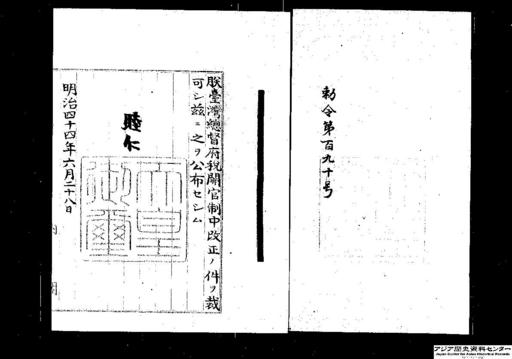 勅令第百九十号
朕臺灣總督府税關官制中改正ノ件ヲ裁
可シ茲ニ之ヲ公布セシム
睦仁
天皇
御璽
明治四十四年六月二十八日
内
アジア歴史資料センター
Japan Center for Asian Historical Records